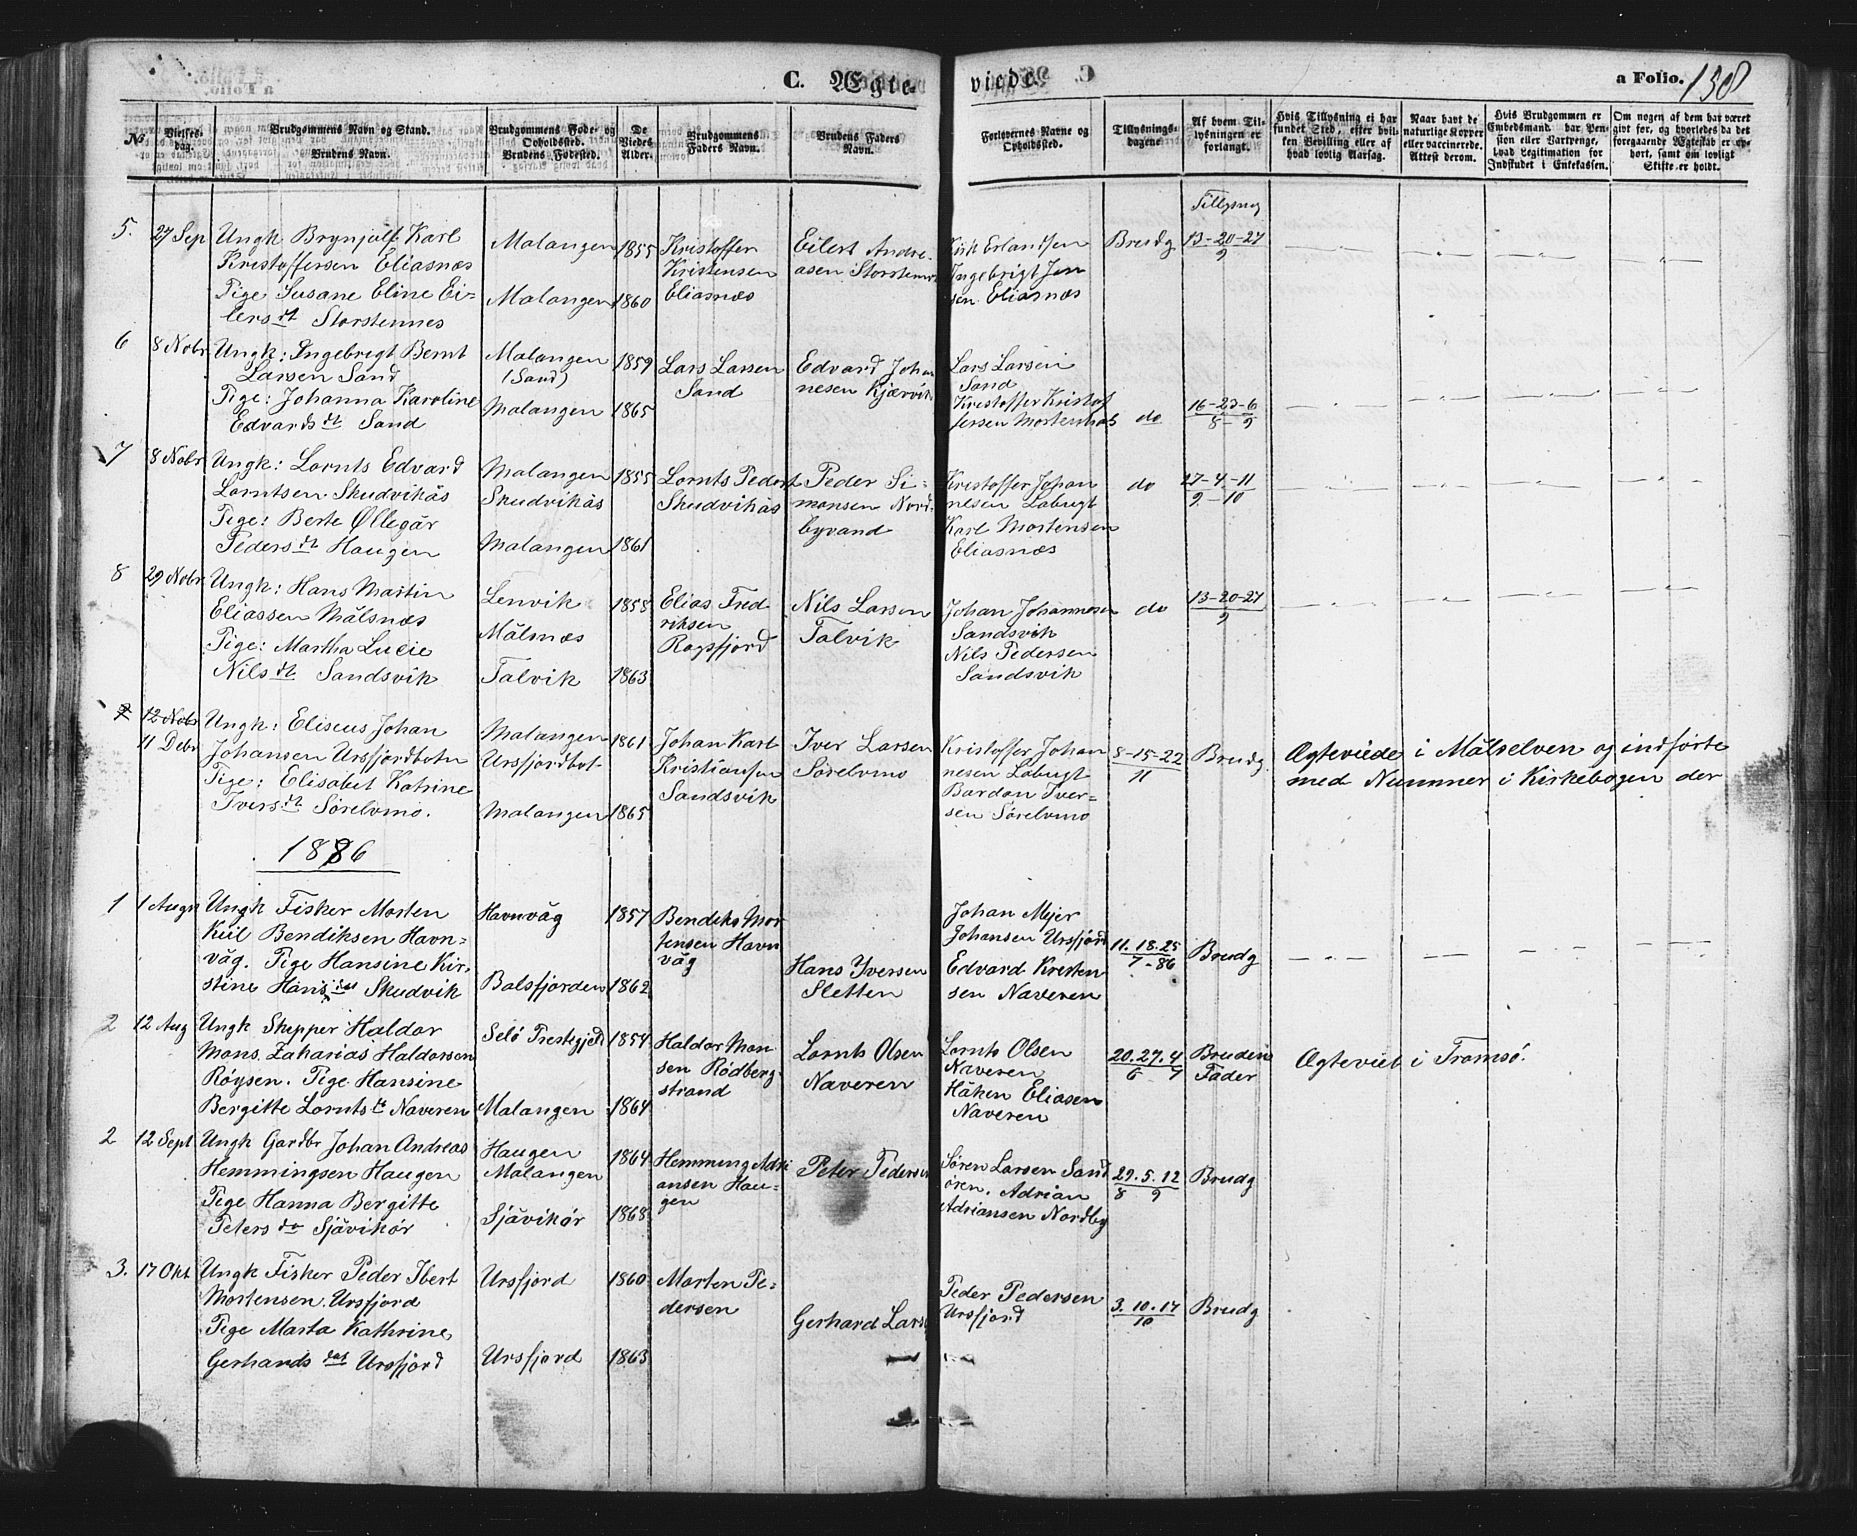 C. Ægte-
viede.
a Folio. 138
No.
Vielses-
dag.
Brudgommens Navn og Stand.
Brudens Navn.
Brudgommens Føde- og
Opholdssted.
Brudens Fødested.
De
Viedes
Alder.
Brudgommens
Faders Navn.
Brudens Faders
Navn.
Forlovernes Navne og
Opholdssted.
Tillysnings-
dagene.
Af hvem Til-
lysningen er
forlangt.
Hvis Tillysning ei har
fundet Sted, efter hvil-
ken Bevilling eller af
hvad lovlig Aarsag.
Naar havt de
naturlige Kopper
eller vaccinerede.
Attest derom.
Hvis Brudgommen er
Embedsmand, har Pen-
sion eller Vartpenge,
hvad Legitimation for
Indskudet i Enkekassen.
Om nogen af dem har været
gift før, og hvorledes da det
foregaaende Ægteskab er op-
hørt, samt om lovligt
Skifte er holdt.
5. 27 Sep
Ungk Brynjulf Karl
Kristoffersen Eliasnæs
Pige Susane Eline Ei-
lersdt Storstennes
Malangen 1855
Malangen 1860
Kristoffer
Kristensen
Eliasnæs
Eilert Andre-
asen Storstennes
Erik Erlandsen
Ingebrigt Jen
sen Eliasnæs
Brudg
Tillysning
13-20-27
9
6 8 Nobr
Ungk: Ingebregt Bernt
Larsen Sand
Pige: Johanna Karoline
Edvardsdt Sand
Malangen 1859
(Sand)
Malangen 1865
Lars Larsen
Sand
Edvard Joha
nesen Kjærvik
Lars Larsen
Sand
Kristoffer Kristof
fersen Mortenhals
do
16-23-6
8-9
7 8 Nobr
Ungk: Lornts Edvard
Lorntsen Skudvikås
Pige: Berte Øllegår
Pedersdt Haugen
Malangen 1855
Skudvikås
Malangen 1861
Lornts Peders
Skudvikås
Peder Si-
monsen Nord-
byvand
Kristoffer Johan
nesen Labugt
Karl Mortensen
Eliasnæs
do
27-4-11
9-10
8 29 Nobr
Ungk: Hans Martin
Eliassen Målsnæs
Pige: Martha Lucie
Nilsdt Sandsvik
Lenvik 1858
Målsnæs
Talvik 1863
Elias Fred
riksen
Rossfjord
Nils Larsen
Talvik
Johan Johannesen
Sandsvik
Nils Pedersen
Sandsvik
do
13-20-27
9
12 Nobr
11 Debr
Ungk: Eliseus Johan
Johansen Ursfjordbotn
Pige: Elisabet Katrine
Iversdt Sørelvmo.
Malangen 1861
Ursfjordbot-
Malangen 1865
Johan Karl
Kristiansen
Sandsvik
Iver Larsen
Sørelvmo
Kristoffer Johan
nesen Labugt
Bardon Iver-
sen Sørelvmo
8-15-22
11
Brudg.
Ægteviede i Målselven og indførte
med Nummer i Kirkebogen der
1886
1 1 Augu
Ungk Fisker Morten
Kiil Bendiksen Havn-
våg. Pige Hansine Kir-
stine Hansdat Skudvik
Havnvåg 1857
Balsfjorden 1862
Bendiks Mor
tensen Havn
våg
Hans Yversen
Sletten
Johan Mejer
Johansen Ursfjord
Edvard Kresten
sen Naveren
11.18.25
7-86
Brudg
2 12 Aug
Ungk Skipper Haldor
Mons. Zaharias Haldorsen
Røysen. Pige Hansine
Bergitte Lorntsdt Naveren
Selö Prestegjeld 1854
Malangen 1864
Haldor Mon
sen Rødberg-
strand
Lornts Olsen
Naveren
Lornts Olsen
Naveren
Håken Eliasen
Naveren
20.27.4
6 7
Brudens
Fader
Ægteviet i Tromsö.
2 12 Sept
Ungk Gardbr Johan Andreas
Hemmingsen Haugen
Pige Hanna Bergitte
Petersdr Sjåvikör
Haugen 1864
Malangen
Sjåvikör 1868
Hemming Adri
ansen Hau-
gen
Peter Pedersen
Søren Larsen Sand
ören. Adrian
Adriansen Nordby
29.5.12
8 9
Brudg
3. 17 Okt
Ungk Fisker Peder Ibert
Mortensen. Ursfjord
Pige Marta Kathrine
Gerhardsdat Ursfjord
Ursfjord 1860
Ursfjord 1863
Morten Pe-
dersen
Gerhard Lars
Peder Pedersen
Ursfjord
3.10.17
10
Brudg